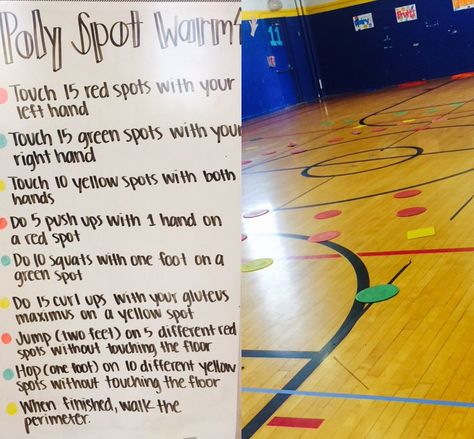 Poly Spot Warm
Touch 15 red spots with your
left hand
Touch 15 green spots with your
right hand
Touch 10 yellow spots with both
hands
Do 5 push ups with 1 hand on
a red spot
Do 10 squats with one foot on a
green spot
Do 15 curl ups with your gluteus
maximus on a yellow spot
Jump (two feet) on 5 different red
spots without touching the floor
Hop (one foot) on 10 different yellow
spots without touching the floor
When finished, walk the
perimeter.
11